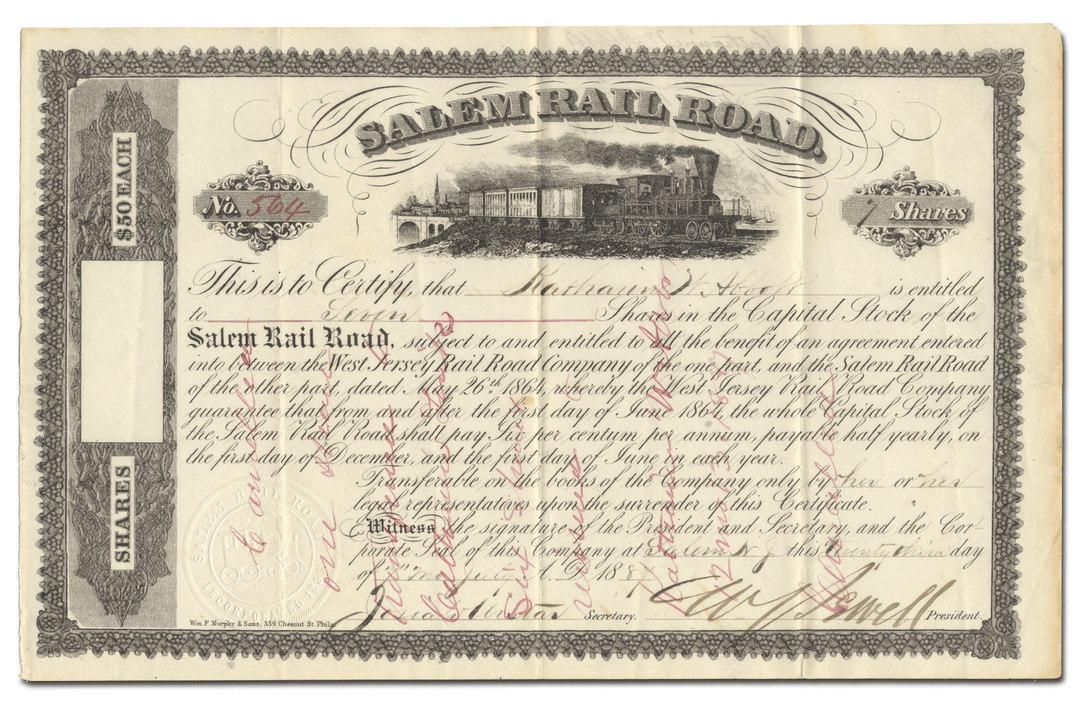 SALEM RAIL ROAD.
$50 EACH
No. 564
7 Shares
This is to Certify, that Katharin W. Abbott is entitled
to Seven Shares in the Capital Stock of the
Salem Rail Road, subject to and entitled to all the benefit of an agreement entered
into between the West Jersey Rail Road Company of the one part, and the Salem Rail Road
of the other part, dated May 26th 1864, whereby the West Jersey Rail Road Company
guarantee that from and after the first day of June 1864, the whole Capital Stock of
the Salem Rail Road shall pay Six per centum per annum, payable half yearly, on
the first day of December, and the first day of June in each year.
Transferable on the books of the Company only by her or her
legal representatives upon the surrender of this Certificate.
Witness the signature of the President and Secretary, and the Cor-
porate Seal of this Company at Salem N. J. this twenty third day
of July A. D. 188
Secretary.
W J Sewell President.
SHARES
SALEM RAIL ROAD
INCORPORATED
Wm. F. Murphy & Sons, 339 Chesnut St. Phila.
Cancelled
one share